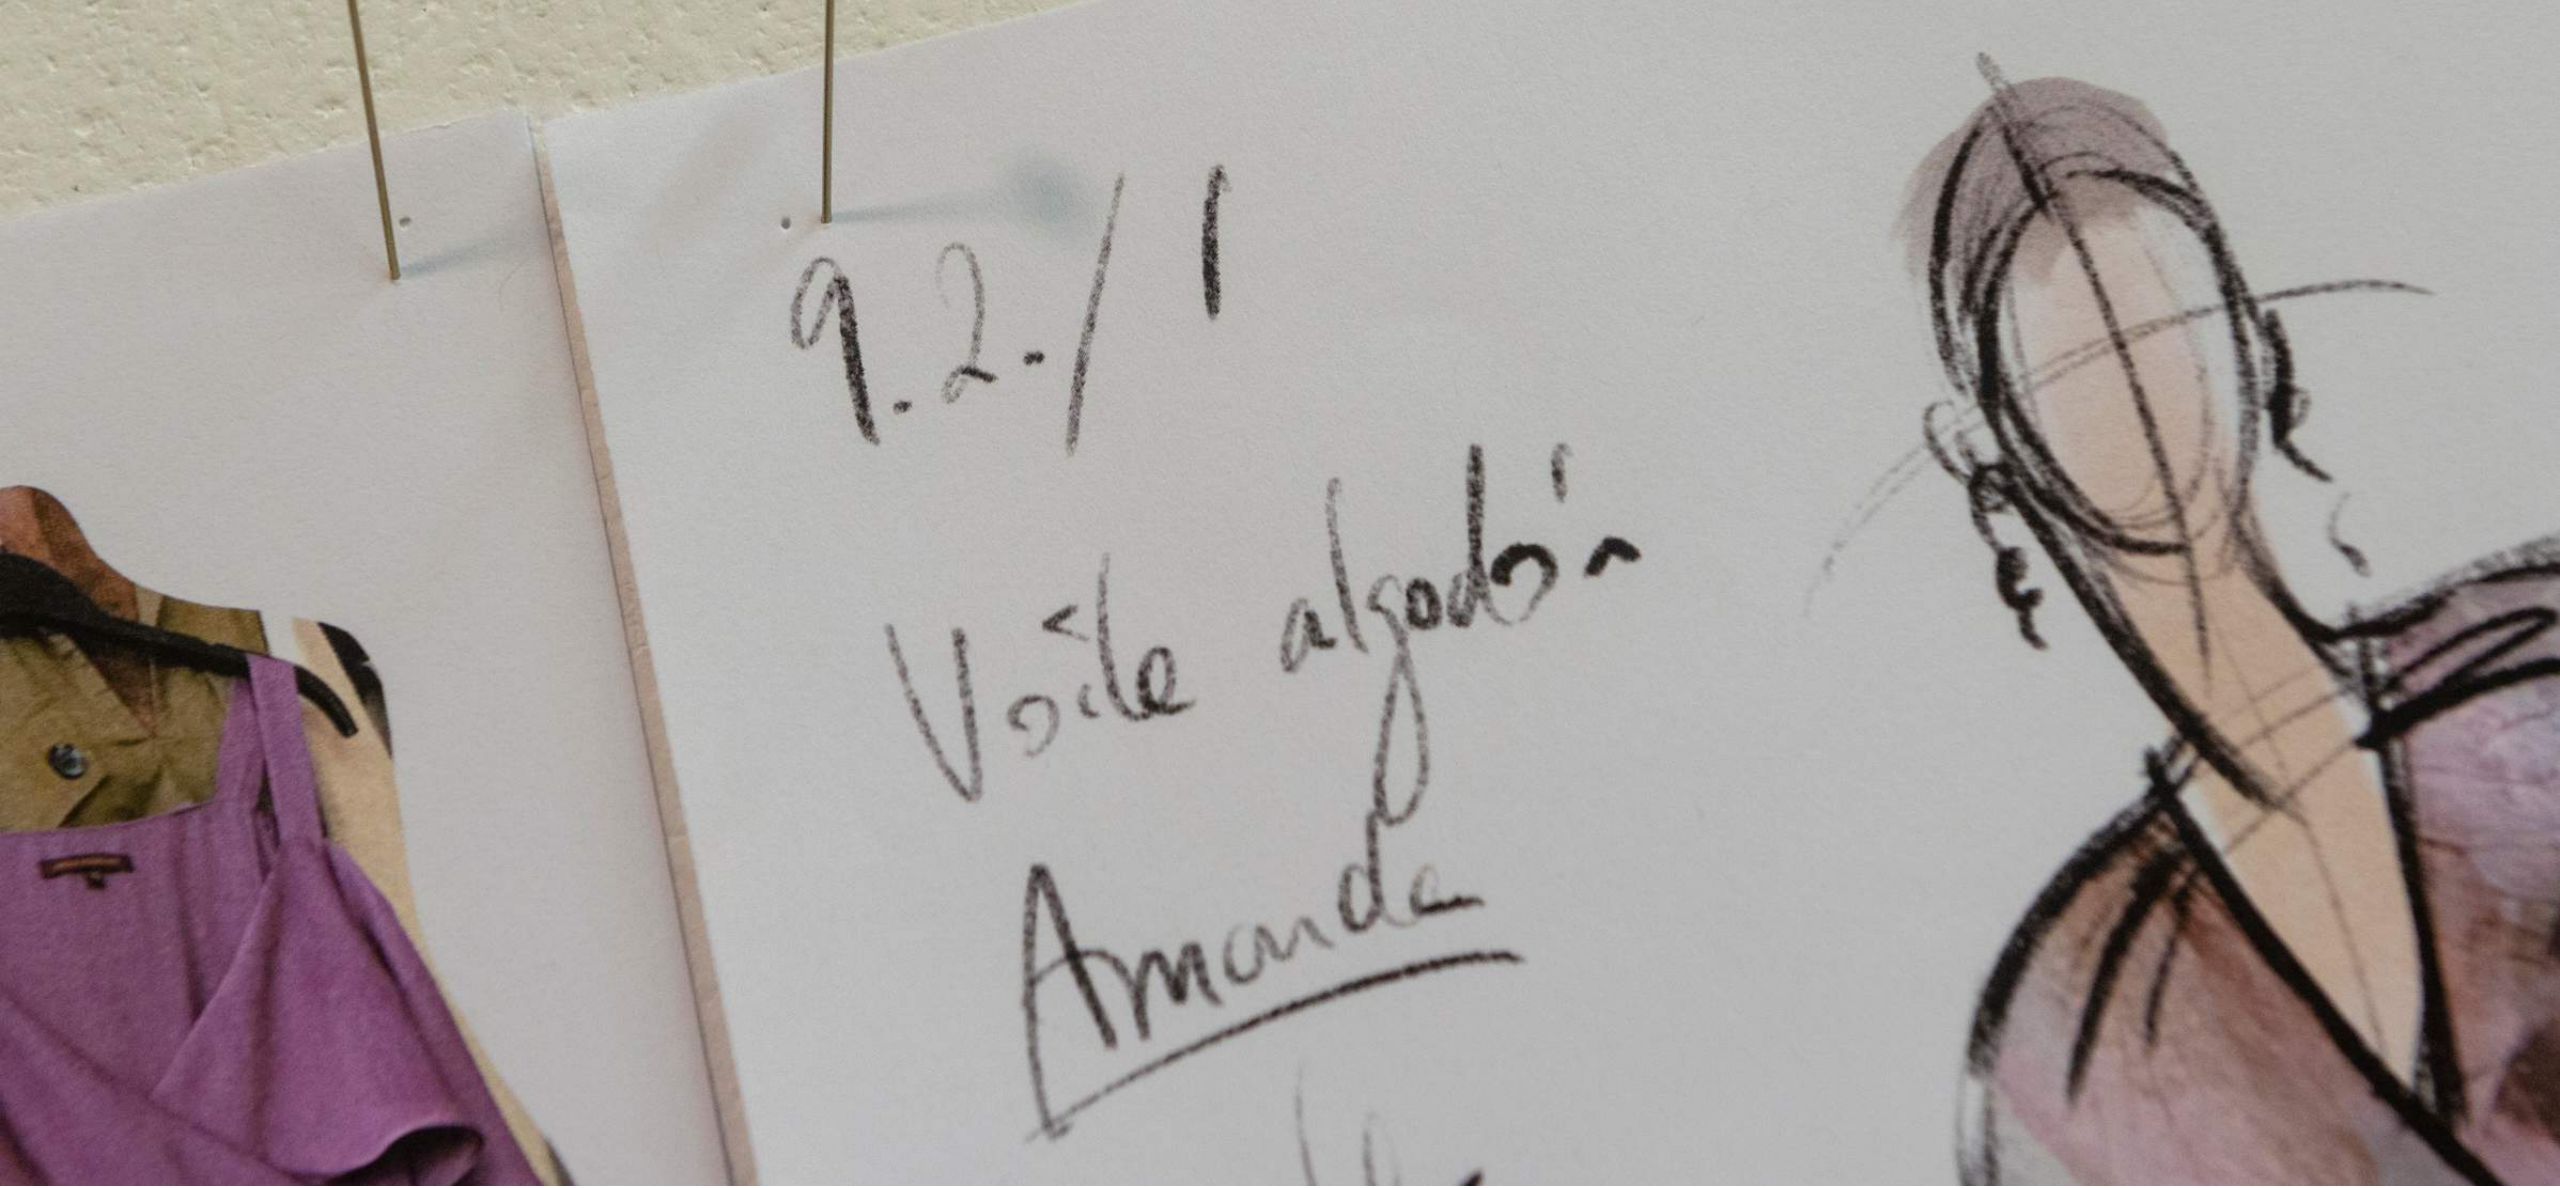 9.2./1
Voile algodón
Amanda